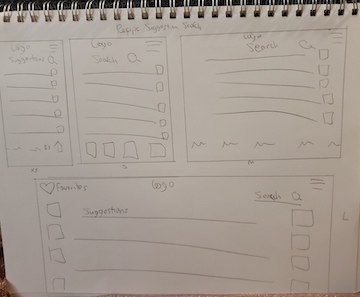 Suggestion Search
Logo
Suggestion
XS
Logo
Search
S
Logo
Search
M
Favorites
Logo
Search
Suggestions
L